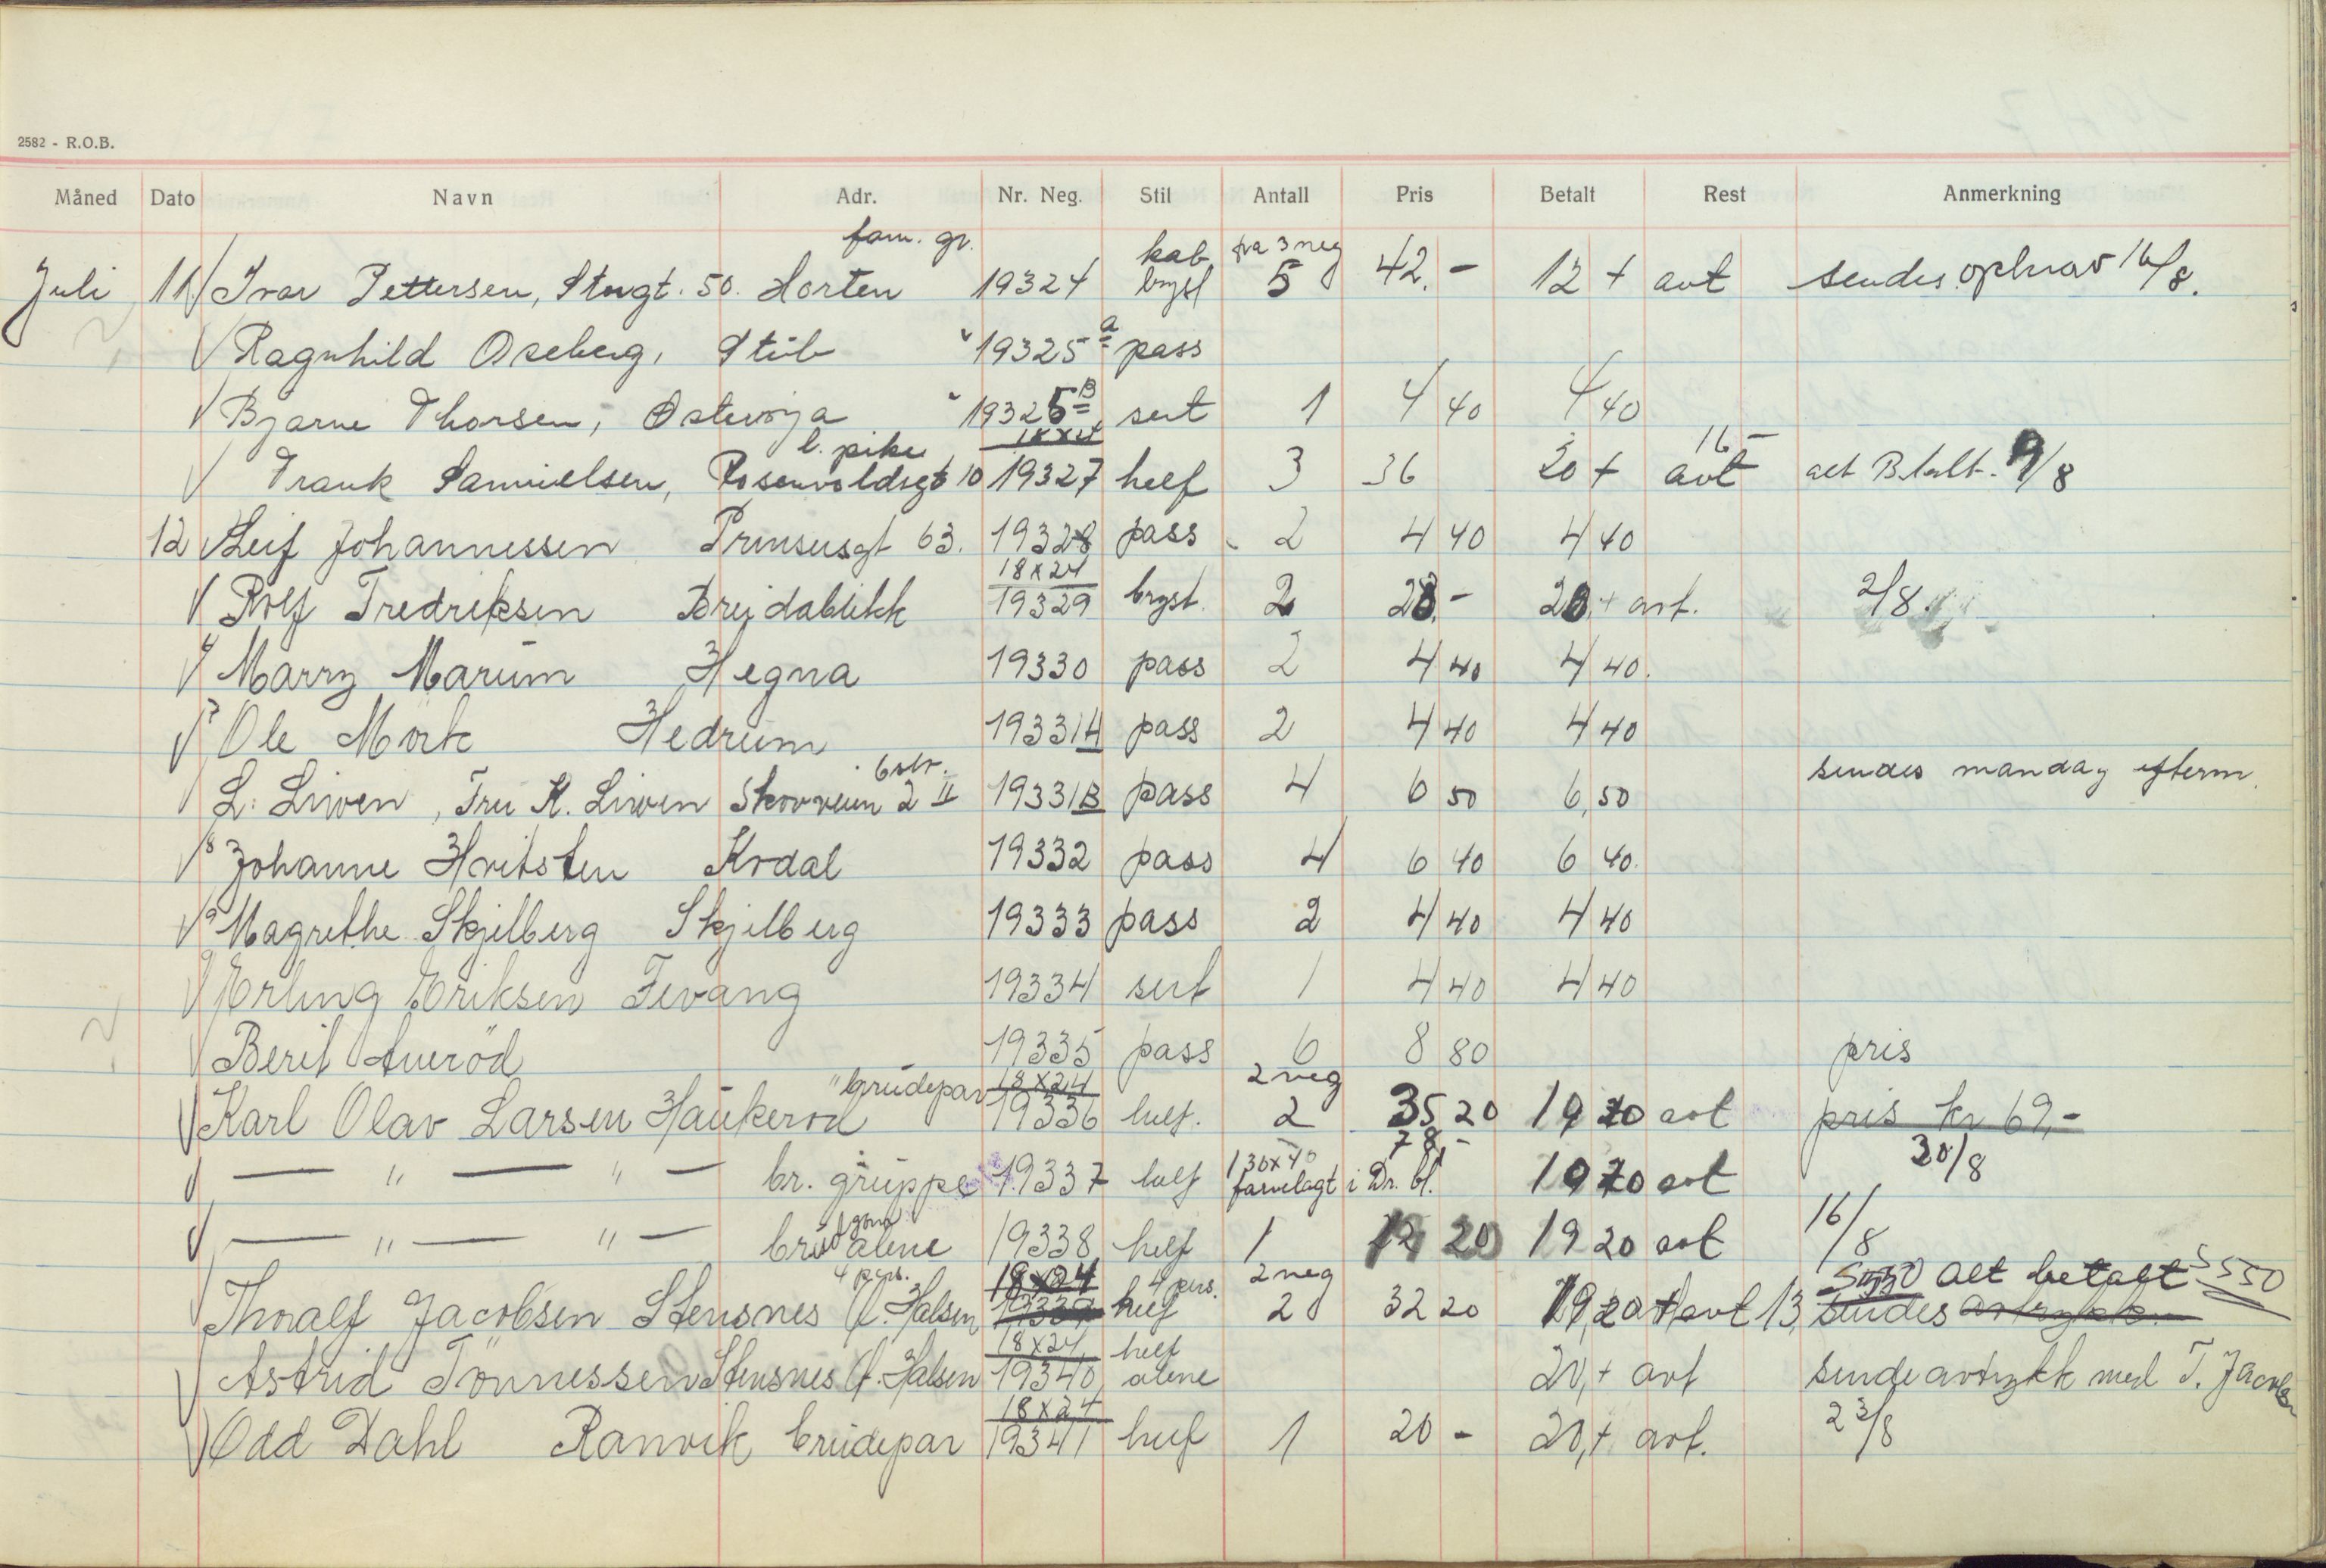 2582 - R.O.B.
Måned Dato Navn Adr. Nr. Neg. Stil Antall Pris Betalt Rest Anmerkning
fam. gr. kab. fra 3 neg
Juli 11 Ivar Pettersen, Storgt. 50. Horten 19324 bryst 5 42.- 12 + avt sendes 16/8.
Ragnhild Oseberg, Stub " 19325 a pass
Bjarne Thorsen, Osterøya " 19325 B sert 1 4 40 4 40
l. pike 18x24 16-
Frank Samuelsen, Rosenvoldsgt 10 19327 helf 3 36 20 + avt alt B.talt. 9/8
12 Leif Johannessen Prinsensgt 63. 19328 pass 2 4 40 4 40
18x24
Rolf Fredriksen Breidablikk 19329 bryst. 2 28.- 20 + avt. 2/8
Marry Marum Hegna 19330 pass 2 4 40 4 40.
Ole Mørk Hedrum 19331A pass 2 4 40 4 40
L. Liven, Fru K. Liven Skovveien 2 II 19331B pass 4 6 50 6,50 sendes mandag efterm.
8 Johanne Hvitsten Kodal 19332 pass 4 6 40 6 40.
9 Magrethe Skjelberg Skjelberg 19333 pass 2 4 40 4 40
Erling Eriksen Fevang 19334 sert 1 4 40 4 40
Berit Auerød 19335 pass 6 8 80 pris
"brudepar 18x24 2 neg
Karl Olav Larsen Haukerød 19336 helf. 2 35 20 19 20 avt pris kr 69,-
78,- 30/8
— " — " — br. gruppe 19337 helf 1 30x40 farvelagt i Dr. bl. 19 20 avt
gom 16/8
— " — " — brud alene 19338 helf 1 20 19 20 avt
4 pers. 18x24 4 pers. 2 neg alt betalt 5550
Thoralf Jacobsen Stensnes Halsen 19339 helf 2 32 20 19,20 + avt 13, sendes avtrykk
18x24 helf
Astrid Tönnessen Stensnes Halsen 19340 alene 20,+ avt sende avtrykk med T. Jacobsen
18x24 23/8
Odd Dahl Ranvik brudepar 19341 helf 1 20 - 20,+ avt.